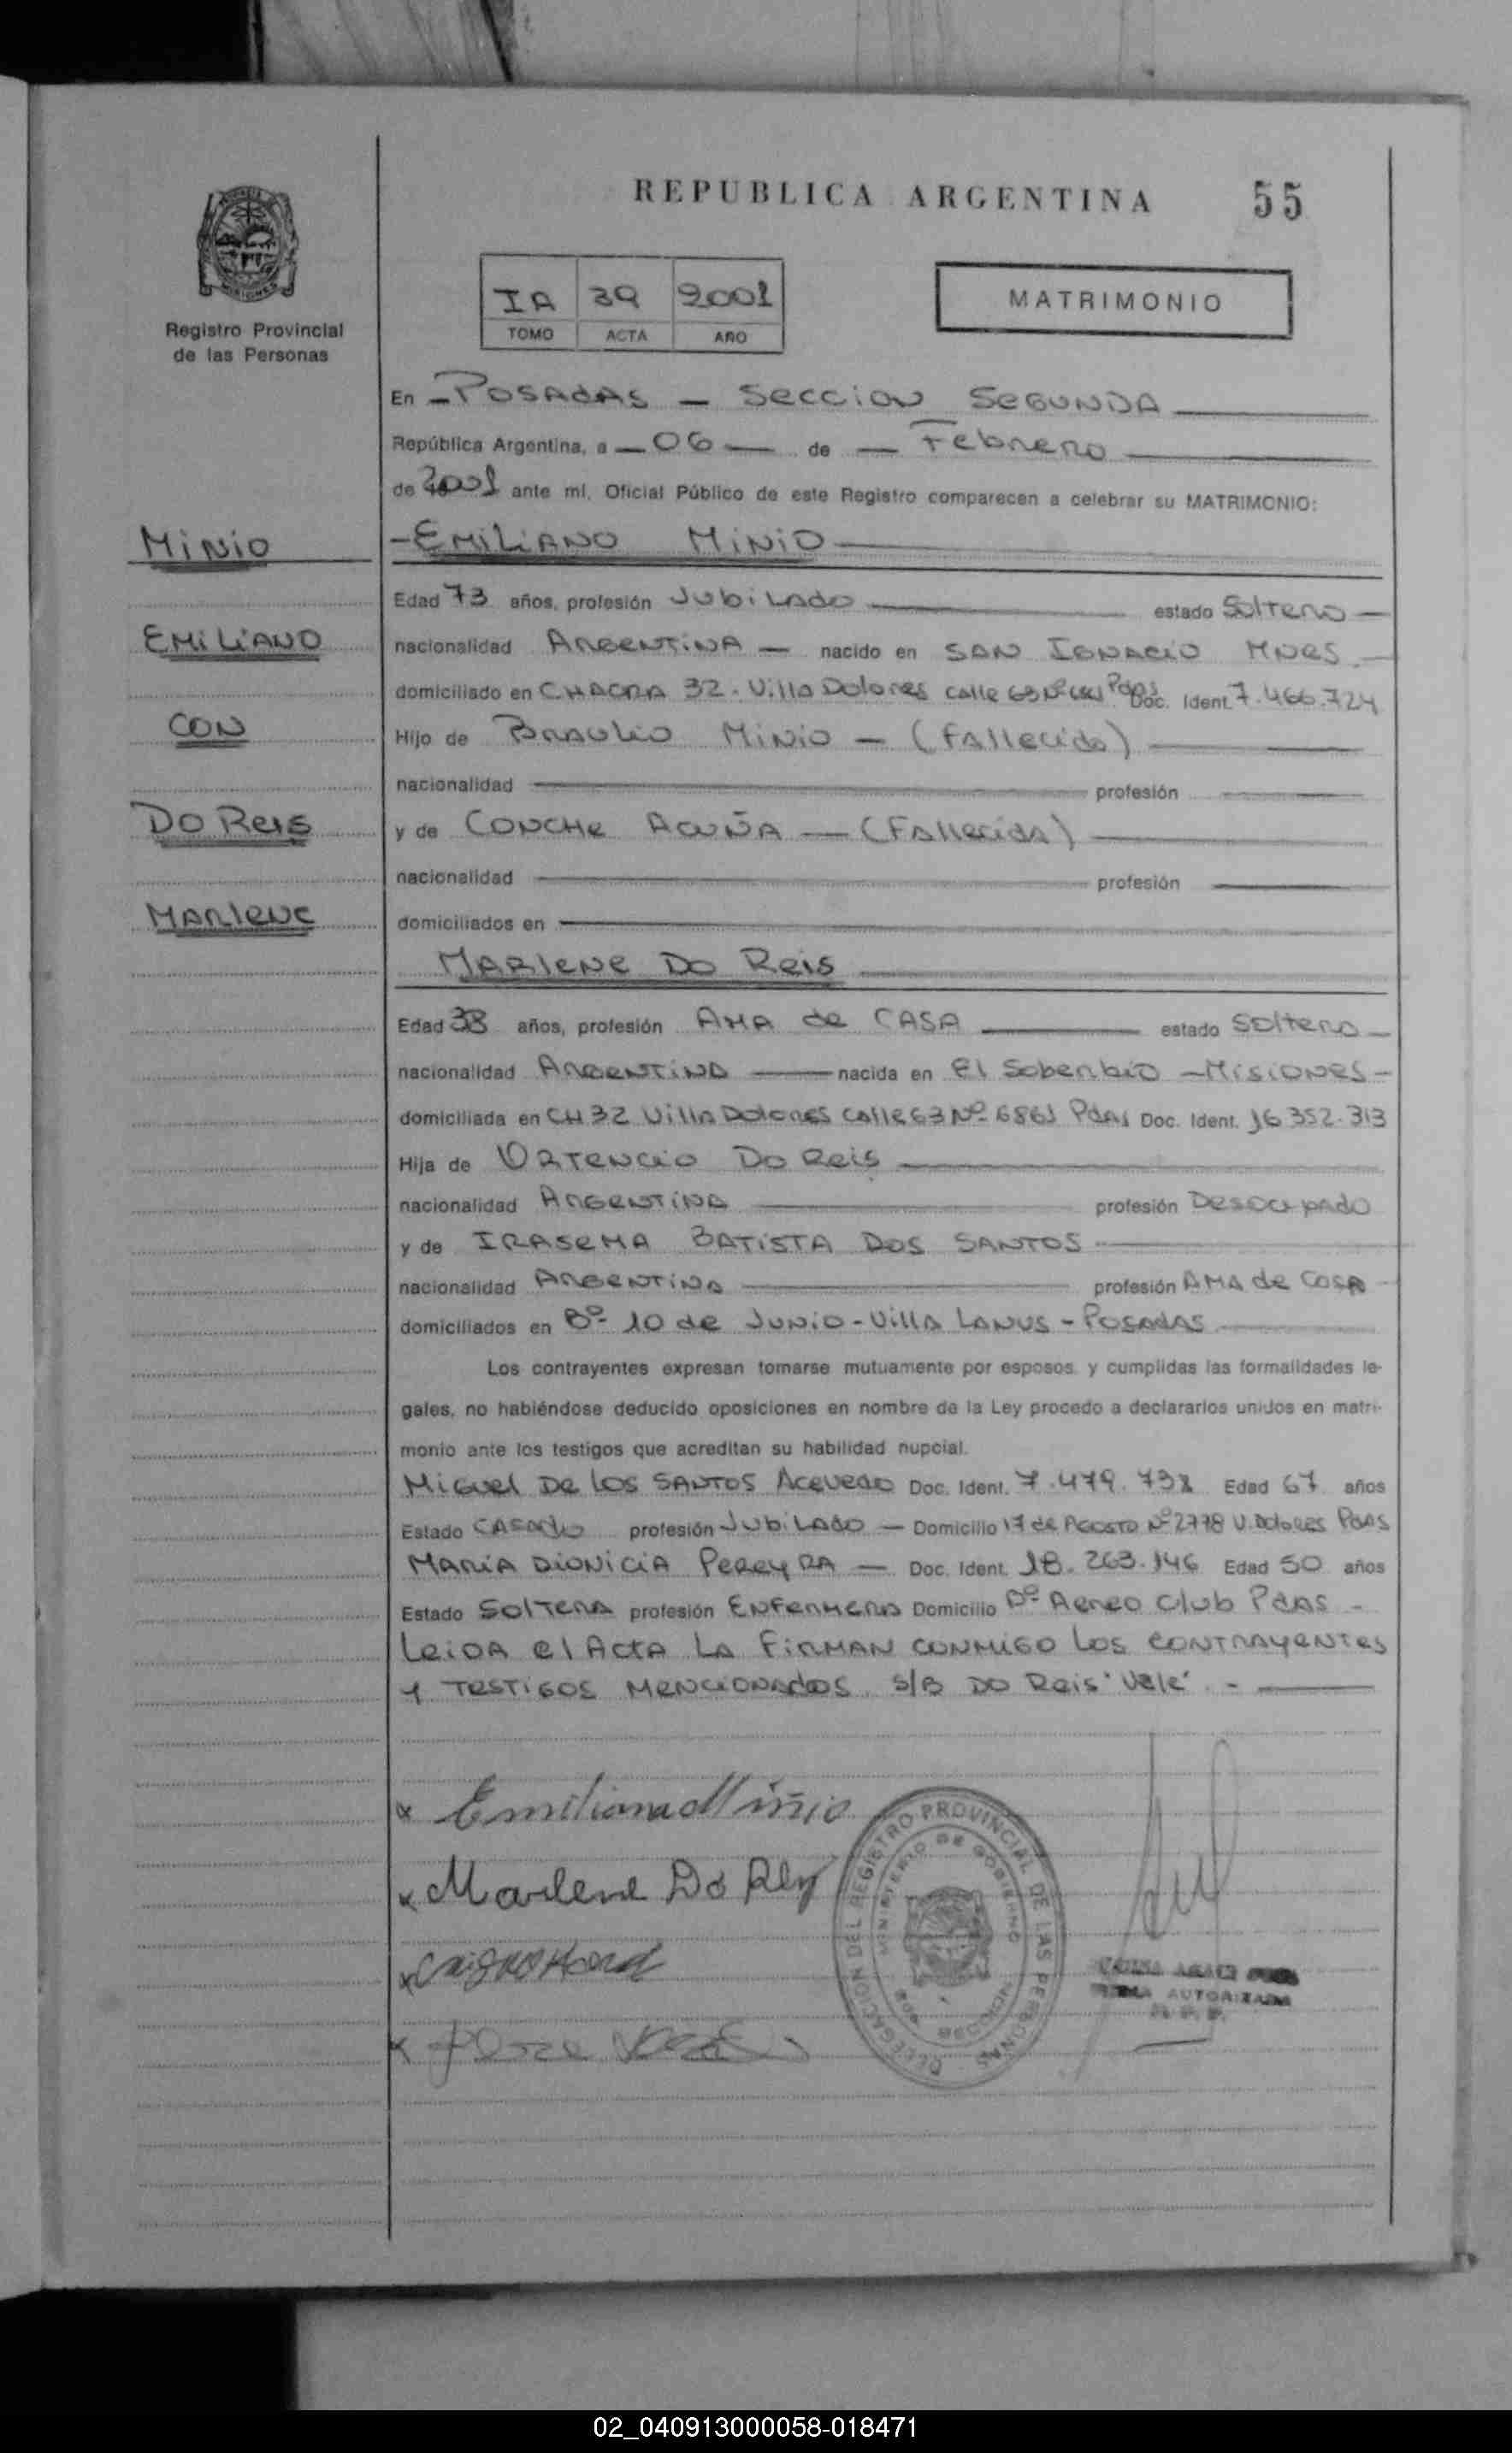 REPUBLICA ARGENTINA 55
Registro Provincial
de las Personas
IA 39 2001
TOMO ACTA AÑO
MATRIMONIO
En - POSADAS - SECCION SEGUNDA
República Argentina, a - 06 - de - Febrero
de 2001 ante mí, Oficial Público de este Registro comparecen a celebrar su MATRIMONIO:
MINIO
EMILIANO
CON
DO REIS
MARLENE
- EMILIANO MINIO
Edad 73 años, profesión JUBILADO estado SOLTERO -
nacionalidad ARGENTINA - nacido en SAN IGNACIO MNES. -
domiciliado en CHACRA 32. Villa Dolores calle 63 Nº Pdas. Doc. Ident. 7.466.724
Hijo de BRAULIO MINIO - (FALLECIDO)
nacionalidad profesión
y de CONCHE ACUÑA - (FALLECIDA)
nacionalidad profesión
domiciliados en
MARLENE DO REIS
Edad 38 años, profesión AMA de CASA estado SOLTERA -
nacionalidad ARGENTINA nacida en El Soberbio - MISIONES -
domiciliada en CH 32 Villa Dolores calle 63 Nº 6861 Pdas Doc. Ident. 16 352.313
Hija de ORTENCIO DO REIS
nacionalidad ARGENTINA profesión DESOCUPADO
y de IRASEMA BATISTA DOS SANTOS
nacionalidad ARGENTINA profesión AMA de CASA -
domiciliados en Bº 10 de JUNIO - VILLA LANUS - POSADAS
Los contrayentes expresan tomarse mutuamente por esposos y cumplidas las formalidades le-
gales, no habiéndose deducido oposiciones en nombre de la Ley procedo a declararlos unidos en matri-
monio ante los testigos que acreditan su habilidad nupcial.
MIGUEL DE LOS SANTOS ACEVEDO Doc. Ident. 7.479.738 Edad 67 años
Estado CASADO profesión JUBILADO - Domicilio 17 de AGOSTO Nº 2778 V. Dolores Pdas
MARIA DIONICIA PEREYRA - Doc. Ident. 18.263.146 Edad 50 años
Estado SOLTERA profesión ENFERMERA Domicilio Bº Aereo Club Pdas -
LEIDA el ACTA LA FIRMAN CONMIGO LOS CONTRAYENTES
Y TESTIGOS MENCIONADOS. S/B DO REIS "Vale". -
x Emiliano Miño
x Marlene Do Rey
x
x
DELEGACION DEL REGISTRO PROVINCIAL DE LAS PERSONAS
MINISTERIO DE GOBIERNO
MISIONES
AUTORIZADA
02_040913000058-018471